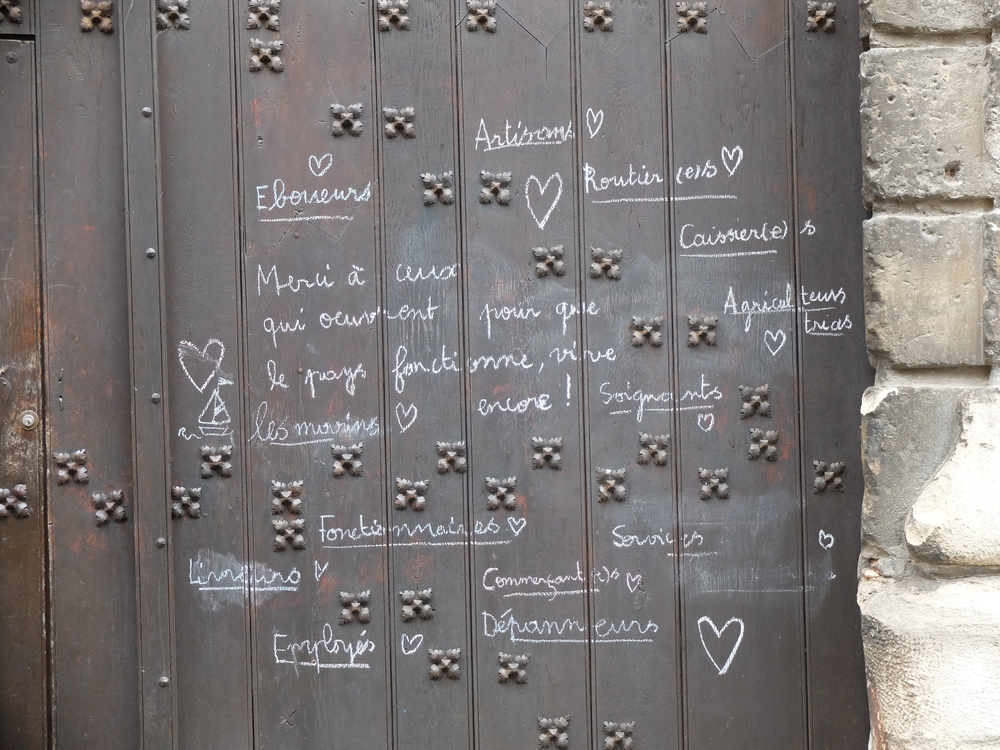 Artisans
Eboueurs
Routier (e)s
Caissier(e) s
Merci à ceux
qui oeuvrent pour que
le pays fonctionne, vivre
encore !
Agriculteurs
trices
Soignants
les marins
Fonctionnaires
Services
Livreurs
Commerçant(e)s
Employés
Dépanneurs